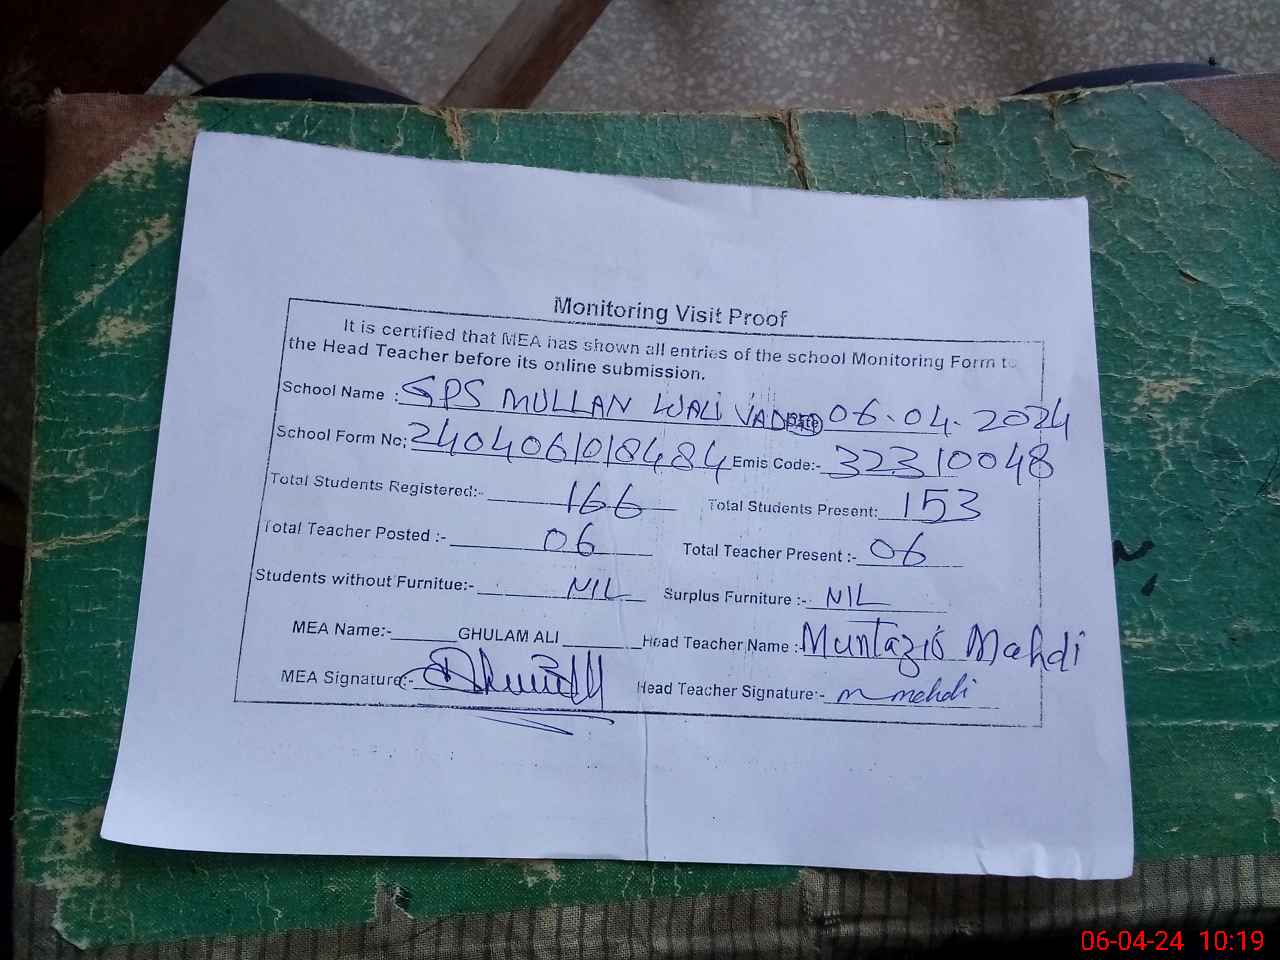 Monitoring Visit Proof
It is certified that MEA has shown all entries of the school Monitoring Form to
the Head Teacher before its online submission.
School Name : GPS MULLAN WALI VAD Date 06.04.2024
School Form No: 2404061018484 Emis Code:- 32310048
Total Students Registered:- 166 Total Students Present: 153
Total Teacher Posted :- 06 Total Teacher Present :- 06
Students without Furnitue:- NIL Surplus Furniture :- NIL
MEA Name:- GHULAM ALI Head Teacher Name : Muntazir Mahdi
MEA Signature:- Head Teacher Signature:- m mehdi
06-04-24 10:19